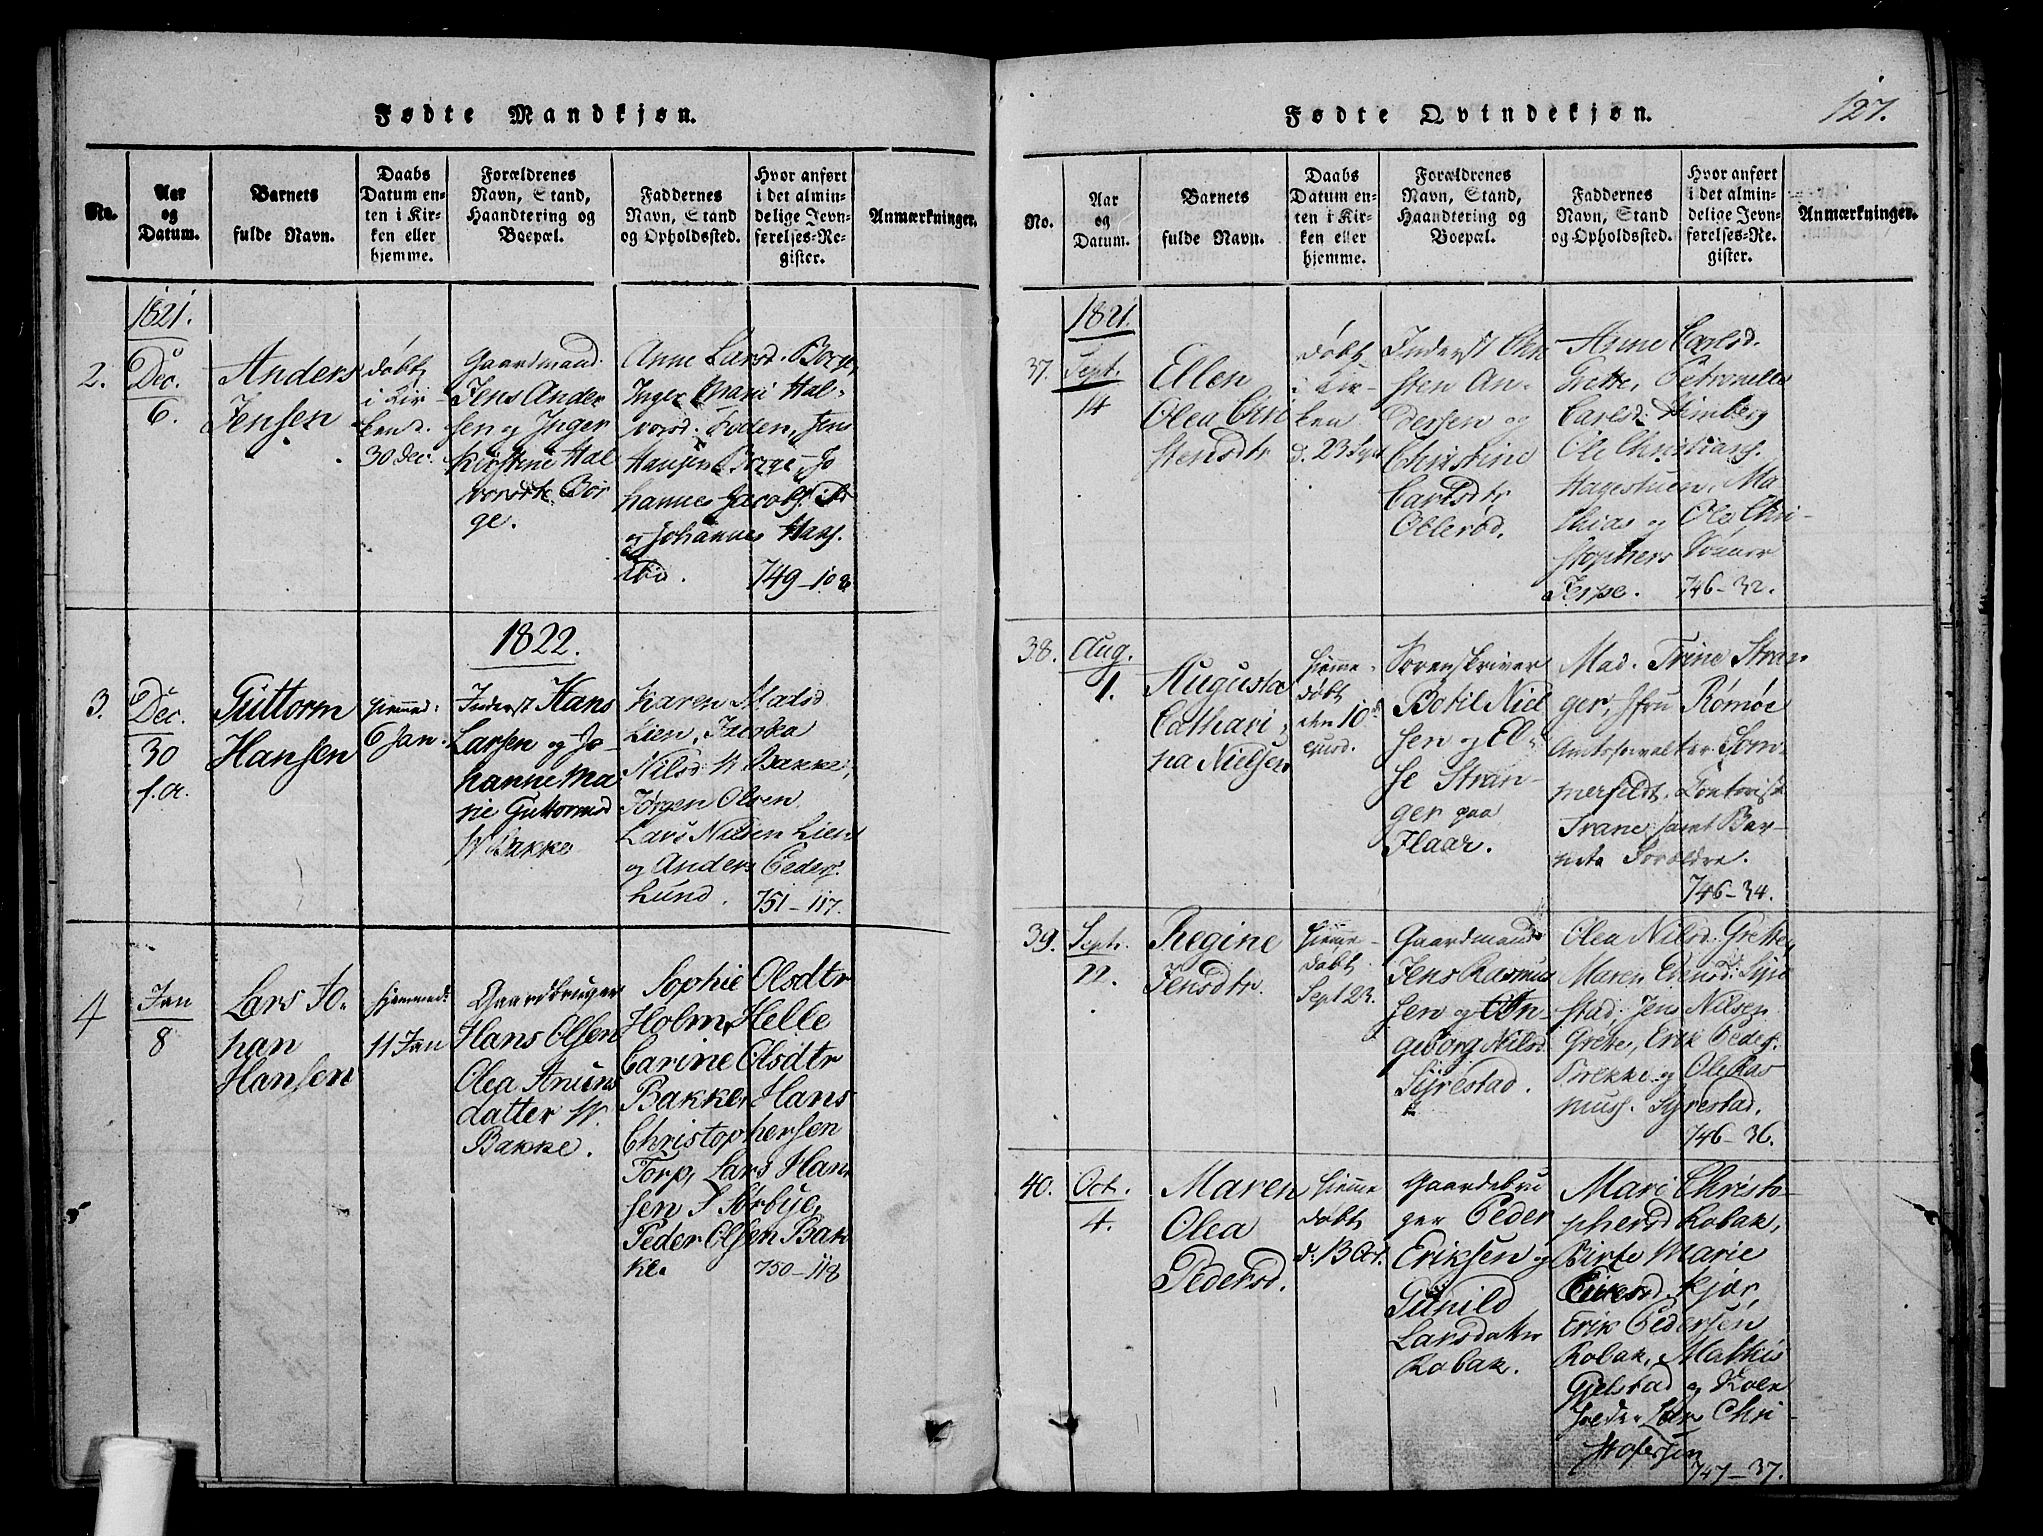 Fødte Mandkjøn.
No.
Aar
og
Datum.
Barnets
fulde Navn.
Daabs
Datum en-
ten i Kir-
ken eller
hjemme.
Forældrenes
Navn, Stand,
Haandtering og
Boepæl.
Faddernes
Navn, Stand
og Opholdssted.
Hvor anført
i det almin-
delige Jevn-
førelses-Re-
gister.
Anmærkninger.
1821.
2.
Dec.
6.
Anders
Jensen
døbt
i Kir-
ken d.
30 Dec.
Gaardmand
Jens Ander
sen og Inger
Kirstine Hal
vorsdtr Bor
ge.
Anne Larsd. Borge,
Inger Mari Hal-
vorsd. Foden, Jens
Hansen Borge, Jo
hannes Jacobs.
og Johannes Hans.
ibid.
749-108
1822.
3.
Dec.
30
f. a.
Guttorm
Hansen
hjemmed.
6 Jan.
Inderst Hans
Larsen og Jo-
hanne Ma
rie Guttormsd
N Bakke
Karen Madsd
Lien, Jacoba
Nilsd N Bakke,
Jørgen Olsen
Lars Nilsen Lien
og Anders Peders.
Lund.
751-117.
4
Jan
8
Lars Jo-
han
Hansen
hjemmed.
11 Jan
Gaardbruger
Hans Olsen
Olea Amuns
datter N.
Bakke.
Sophie Olsdtr
Holm, Helle
Carine Olsdtr
Bakke, Hans
Christophersen
Torp, Lars Han
sen S Sørbye,
Peder Olsen Bak
ke.
750-118
Fødte Qvindekjøn.
127.
No.
Aar
og
Datum.
Barnets
fulde Navn.
Daabs
Datum en-
ten i Kir-
ken eller
hjemme.
Forældrenes
Navn, Stand,
Haandtering og
Boepæl.
Faddernes
Navn, Stand
og Opholdssted.
Hvor anført
i det almin-
delige Jevn-
førelses-Re-
gister.
Anmærkninger.
1821.
37.
Sept.
14
Ellen
Olea Cri
stensdtr
døbt
i Kir-
ken
d. 23 Sept
Inderst Chri
sten An-
dersen og
Christine
Carlsdtr
Oblerød.
Anne Carlsd.
Grette, Petronelle
Carlsd. Stimberg
Ole Christians.
Hagestuen, Ma
thias og Ole Chri-
stophers Sønner
Jerpe.
746-32.
38.
Aug.
1.
Augusta
Cathari-
na Nielsen
hjemme-
døbt
den 10de
ejusd.
Sorenskriver
Botil Niel
sen og El-
se Stran-
ger paa
Flaar.
Mad. Trine Stran-
ger, Jfru Rømøe
Amtsforvalter Som-
merfeldt, Contorist
Trane samt Bar-
nets Forældre.
746-34.
39.
Sept.
22.
Regine
Jensdtr.
hjemme-
døbt
Sept 23.
Gaardmand
Jens Rasmus
sen og In-
geborg Nilsd.
Syrestad.
Olea Nilsd. Grette,
Maren Evensd: Syre
stad, Jens Nilsen
Grette, Erik Peders.
Brekke og Ole Ras
muss. Syrestad.
746-36.
40.
Oct.
4.
Maren
Olea
Pedersd.
hjemme
døbt
d: 13 Oct.
Gaardebru
ger Peder
Eriksen og
Gunild
Larsdatter
Robak.
Mari Christo-
phersd Robak,
Birte Marie
Eriksd. Kjær,
Erik Pedersen
Robak, Mathis
Gjelstad og
Lars Chri-
stofersen
747-37.